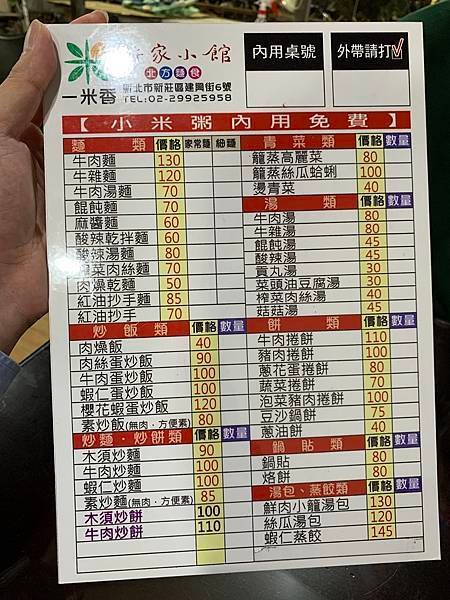 家小館
北方麵食
一米香
新北市新莊區建興街6號
TEL:02-29925958
內用桌號
外帶請打✓
【小米粥內用免費】
麵 類 價格 家常麵 細麵
牛肉麵 130
牛雜麵 120
牛肉湯麵 70
餛飩麵 70
麻醬麵 60
酸辣乾拌麵 60
酸辣湯麵 80
榨菜肉絲麵 70
肉燥乾麵 50
紅油抄手麵 85
紅油抄手 70
炒飯類 價格 數量
肉燥飯 40
肉絲蛋炒飯 90
牛肉蛋炒飯 100
蝦仁蛋炒飯 100
櫻花蝦蛋炒飯 120
素炒飯(無肉．方便素) 80
炒麵．炒餅類 價格 數量
木須炒麵 90
牛肉炒麵 100
蝦仁炒麵 100
素炒麵(無肉．方便素) 85
木須炒餅 100
牛肉炒餅 110
青菜類 價格 數量
籠蒸高麗菜 80
籠蒸絲瓜蛤蜊 100
燙青菜 40
湯 類 價格 數量
牛肉湯 80
牛雜湯 80
餛飩湯 45
酸辣湯 45
貢丸湯 30
菜頭油豆腐湯 30
榨菜肉絲湯 40
菇菇湯 45
餅 類 價格 數量
牛肉捲餅 110
豬肉捲餅 100
蔥花蛋捲餅 80
蔬菜捲餅 70
泡菜豬肉捲餅 100
豆沙鍋餅 75
蔥油餅 40
鍋貼類 價格 數量
鍋貼 80
烙餅 80
湯包、蒸餃類 價格 數量
鮮肉小籠湯包 130
絲瓜湯包 120
蝦仁蒸餃 145